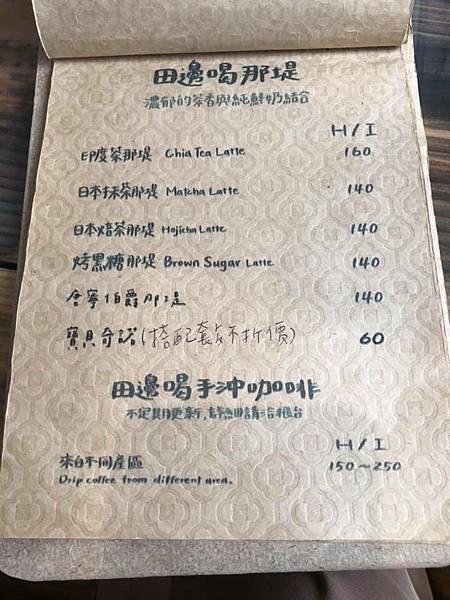 田邊喝那堤
濃郁的茶香與純鮮奶結合
H / I
印度茶那堤 Chia Tea Latte 160
日本抹茶那堤 Matcha Latte 140
日本焙茶那堤 Hojicha Latte 140
烤黑糖那堤 Brown Sugar Latte 140
唐寧伯爵那堤 140
寶貝奇諾(搭配套餐不折價) 60
田邊喝手沖咖啡
不定期更新,詳細請洽櫃台
H / I
來自不同產區 150~250
Drip coffee from different area.